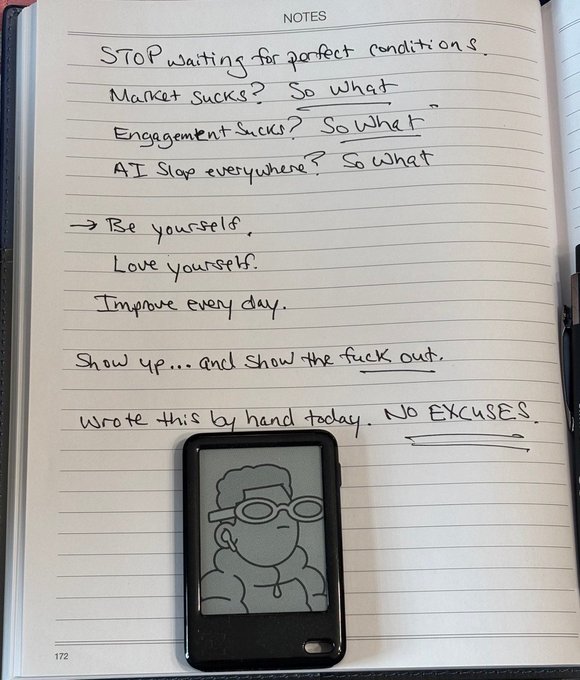 NOTES
STOP waiting for perfect conditions.
Market sucks? So what
Engagement sucks? So what
AI Slop everywhere? So what
→ Be yourself.
Love yourself.
Improve every day.
Show up... and show the fuck out.
Wrote this by hand today. NO EXCUSES.
172